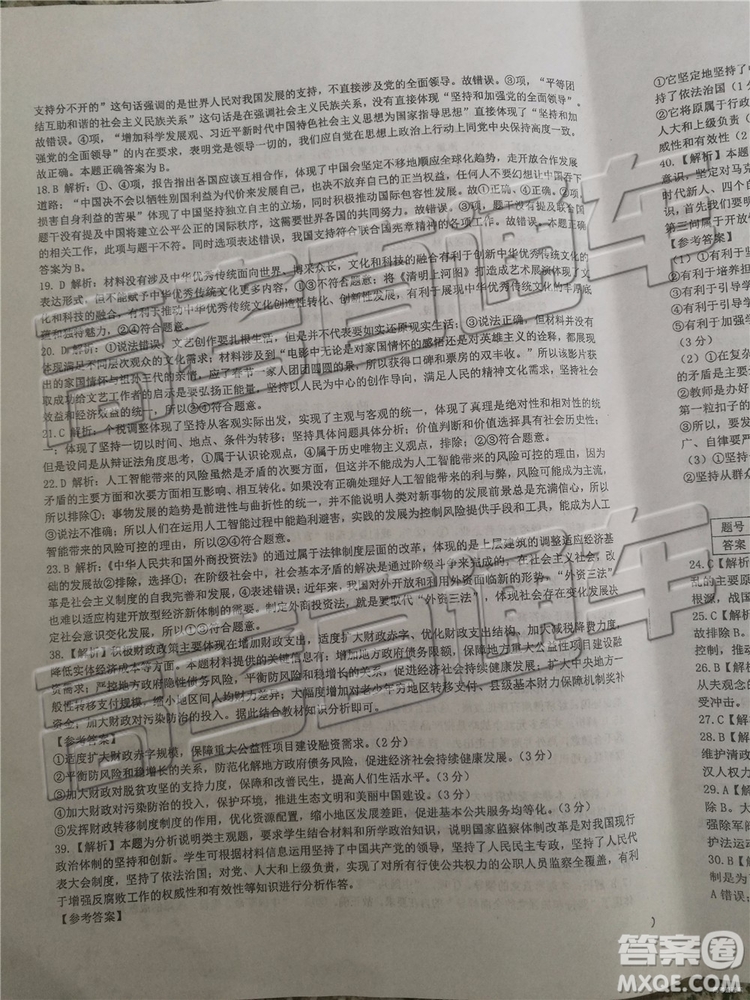 支持分不开的”这句话强调的是世界人民对我国发展的支持，不直接涉及党的全面领导。故错误。③项，“平等团
结互助和谐的社会主义民族关系”这句话是在强调社会主义民族关系，没有直接体现“坚持和加强党的全面领导”
故错误。④项，“增加科学发展观、习近平新时代中国特色社会主义思想为国家指导思想”直接体现“坚持和加
强党的全面领导”的内在要求，表明党是领导一切的，我们应自觉在思想上政治上行动上同党中央保持高度一致。
故正确。本题正确答案为B。
18.B 解析：①、④项，报告指出各国应该互相合作，体现了中国会坚定不移地顺应全球化趋势，走开放合作
道路；“中国决不会以牺牲别国利益为代价来发展自己，也决不放弃自己的正当权益，任何人不要幻想让中国吞下
损害自身利益的苦果”体现了中国坚持独立自主的立场，同时积极推动国际包容性发展。故①、④项正确。②项：
题干没有强调中国将建立公平公正的国际秩序，这需要世界各国的共同努力。故②项错误。③项：题干没有提及联合国
的相关工作，此项与题干不符。同时选项表述错误，我国支持符合联合国宪章精神的各项工作。故③项错误。本题正确
答案为B。
19.D 解析：材料没有涉及中华优秀传统面向世界、博采众长，文化和科技的融合有利于创新中华优秀传统文化的
表达形式，但不能赋予中华优秀传统文化更多内容，①③不符合题意；将《清明上河图》打造成艺术展演体现了文
化和科技的融合，有利于推动中华优秀传统文化创造性转化、创新性发展，有利于展现中华优秀传统文化的丰厚底
蕴和独特魅力，②④符合题意。
20. D 解析：①说法错误，文艺创作要扎根生活，但不表示文艺要如实还原现实生活；②说法正确，但材料没有
体现满足不同层次观众的文化需求；材料涉及到“电影中无论是对家国情怀的感悟还是对英雄主义的演绎，都体现
出的家国情怀与祖孙三代的亲情，应了春节一家人团团圆圆的景，所以获得口碑和票房的双丰收。”所以该影片获
取成功给文艺工作者的启示是要弘扬正能量，坚持以人民为中心的创作导向，满足人民的精神文化需求，坚持社会
效益和经济效益的统一，所以③④符合题意。
21.C 解析：个税调整坚持了从客观实际出发，实现了主观与客观的统一，体现了真理是绝对性与相对性的统一
；体现了坚持一切以时间、地点、条件为转移；坚持具体问题具体分析；价值判断和价值选择具有社会历史性，
但是设问是从辩证法角度思考，①属于认识论观点，④属于历史唯物主义观点，排除；②③符合题意。
22.D 解析：人工智能带来的风险虽然是矛盾的次要方面，但如果没有正确处理人工智能带来的风险，可能成为主流，
矛盾的主要方面和次要方面相互影响、相互转化。如果没有正确处理人工智能带来的利与弊，风险可能成为主流，
所以排除①；事物发展的趋势是前进性与曲折性的统一，并不能说明人类对新事物的发展前景总是充满信心，所以
③说法不准确；所以人们在运用人工智能过程中能趋利避害，实践的发展为控制风险提供手段和工具，能体现人工
智能带来的风险可控，②④符合题意。
23.B 解析：《中华人民共和国外商投资法》的通过属于法律制度层面的改革，体现的是上层建筑的调整适应经济基
础的发展故②排除，选择①；在阶级社会中，社会基本矛盾的解决是通过阶级斗争来实现的。在社会主义社会，改
革是社会主义制度的自我完善和发展；④表述错误；近年来，我国对外开放和利用外资面临新的形势。“外资三法”
也难以适应构建开放型经济新体制的需要。制定外商投资法，就是要取代“外资三法”，体现了社会存在变化发展决
定社会意识变化发展，所以①③符合题意。
38.【解析】积极财政政策主要体现在增加财政支出，适度扩大财政赤字、优化财政支出结构、加大减税降费力度，
降低实体经济成本等方面。本题材料提供的内容有：适度扩大财政赤字、增加地方政府债务限额，保障重大公益性项目建设融
资需求；严控地方政府隐性债务风险，平衡防风险和稳增长的关系，促进经济社会持续健康发展；扩大中央地方一
般性转移支付规模，缩小地区间人均财力差异；大幅度增加对老少边穷地区转移支付、县级基本财力保障机制奖补
资金，加大财政对污染防治的投入。据此结合教材知识分析即可。
【参考答案】
①适度扩大财政赤字规模，保障重大公益性项目建设融资需求。（2分）
②平衡防风险和稳增长的关系、防范化解地方政府债务风险，促进经济社会持续健康发展。（3分）
③加大财政对脱贫攻坚的支持力度，保障和改善民生，提升人民生活水平。（3分）
④加大财政对污染防治的投入，保护环境，推进生态文明和美丽中国建设。（3分）
⑤发挥财政转移制度制度的作用，优化资源配置，缩小地区发展差距，促进基本公共服务均等化。（3分）
39.【解析】本题为分析说明类主观题，要求学生结合材料和所学政治知识，说明国家监察体制改革是对我国现行
政治体制的坚持和创新。学生可根据材料信息运用坚持了中国共产党的领导，坚持了人民民主专政，坚持了人民代
表大会制度，坚持了依法治国；对党、人大及其制度的完善，实现了对所有行使公共权力的公职人员监察全覆盖，有利
于增强反腐败工作的权威性和有效性等知识进行分析作答。
【参考答案】
①它坚定地坚持了中
持了依法治国（1分
②它将原属于行政
人大和上级负责（
威性和有效性（2
40.【解析】本
意识，坚定对马克
时代新人、四个
识，首先我们要明
第三问属于开放
【参考答案】
（1）①有利于
②有利于培养
③有利于引导
④有利于引导学
⑤有利于加强
（3分）
（2）①在复杂
的矛盾是主要
②教师是办好
第一粒扣子的
③所以，要发
广、自律要严
（3）①坚持马
②坚持从群众
题号
答案
24.C【解析
乱的主要原
根源，战国
25.B【解析
故排除B。
控制，推动
26.B【解析
从夫观念的
受冲击。
27.C【解析
28.B【解析
维护清政
汉人权力
29.A【解析
除B。大
强除军的
护法运动
30.B【解
制是为了
A错误；
）
高考直通车
高考直通车
答案圈
MXQE.COM